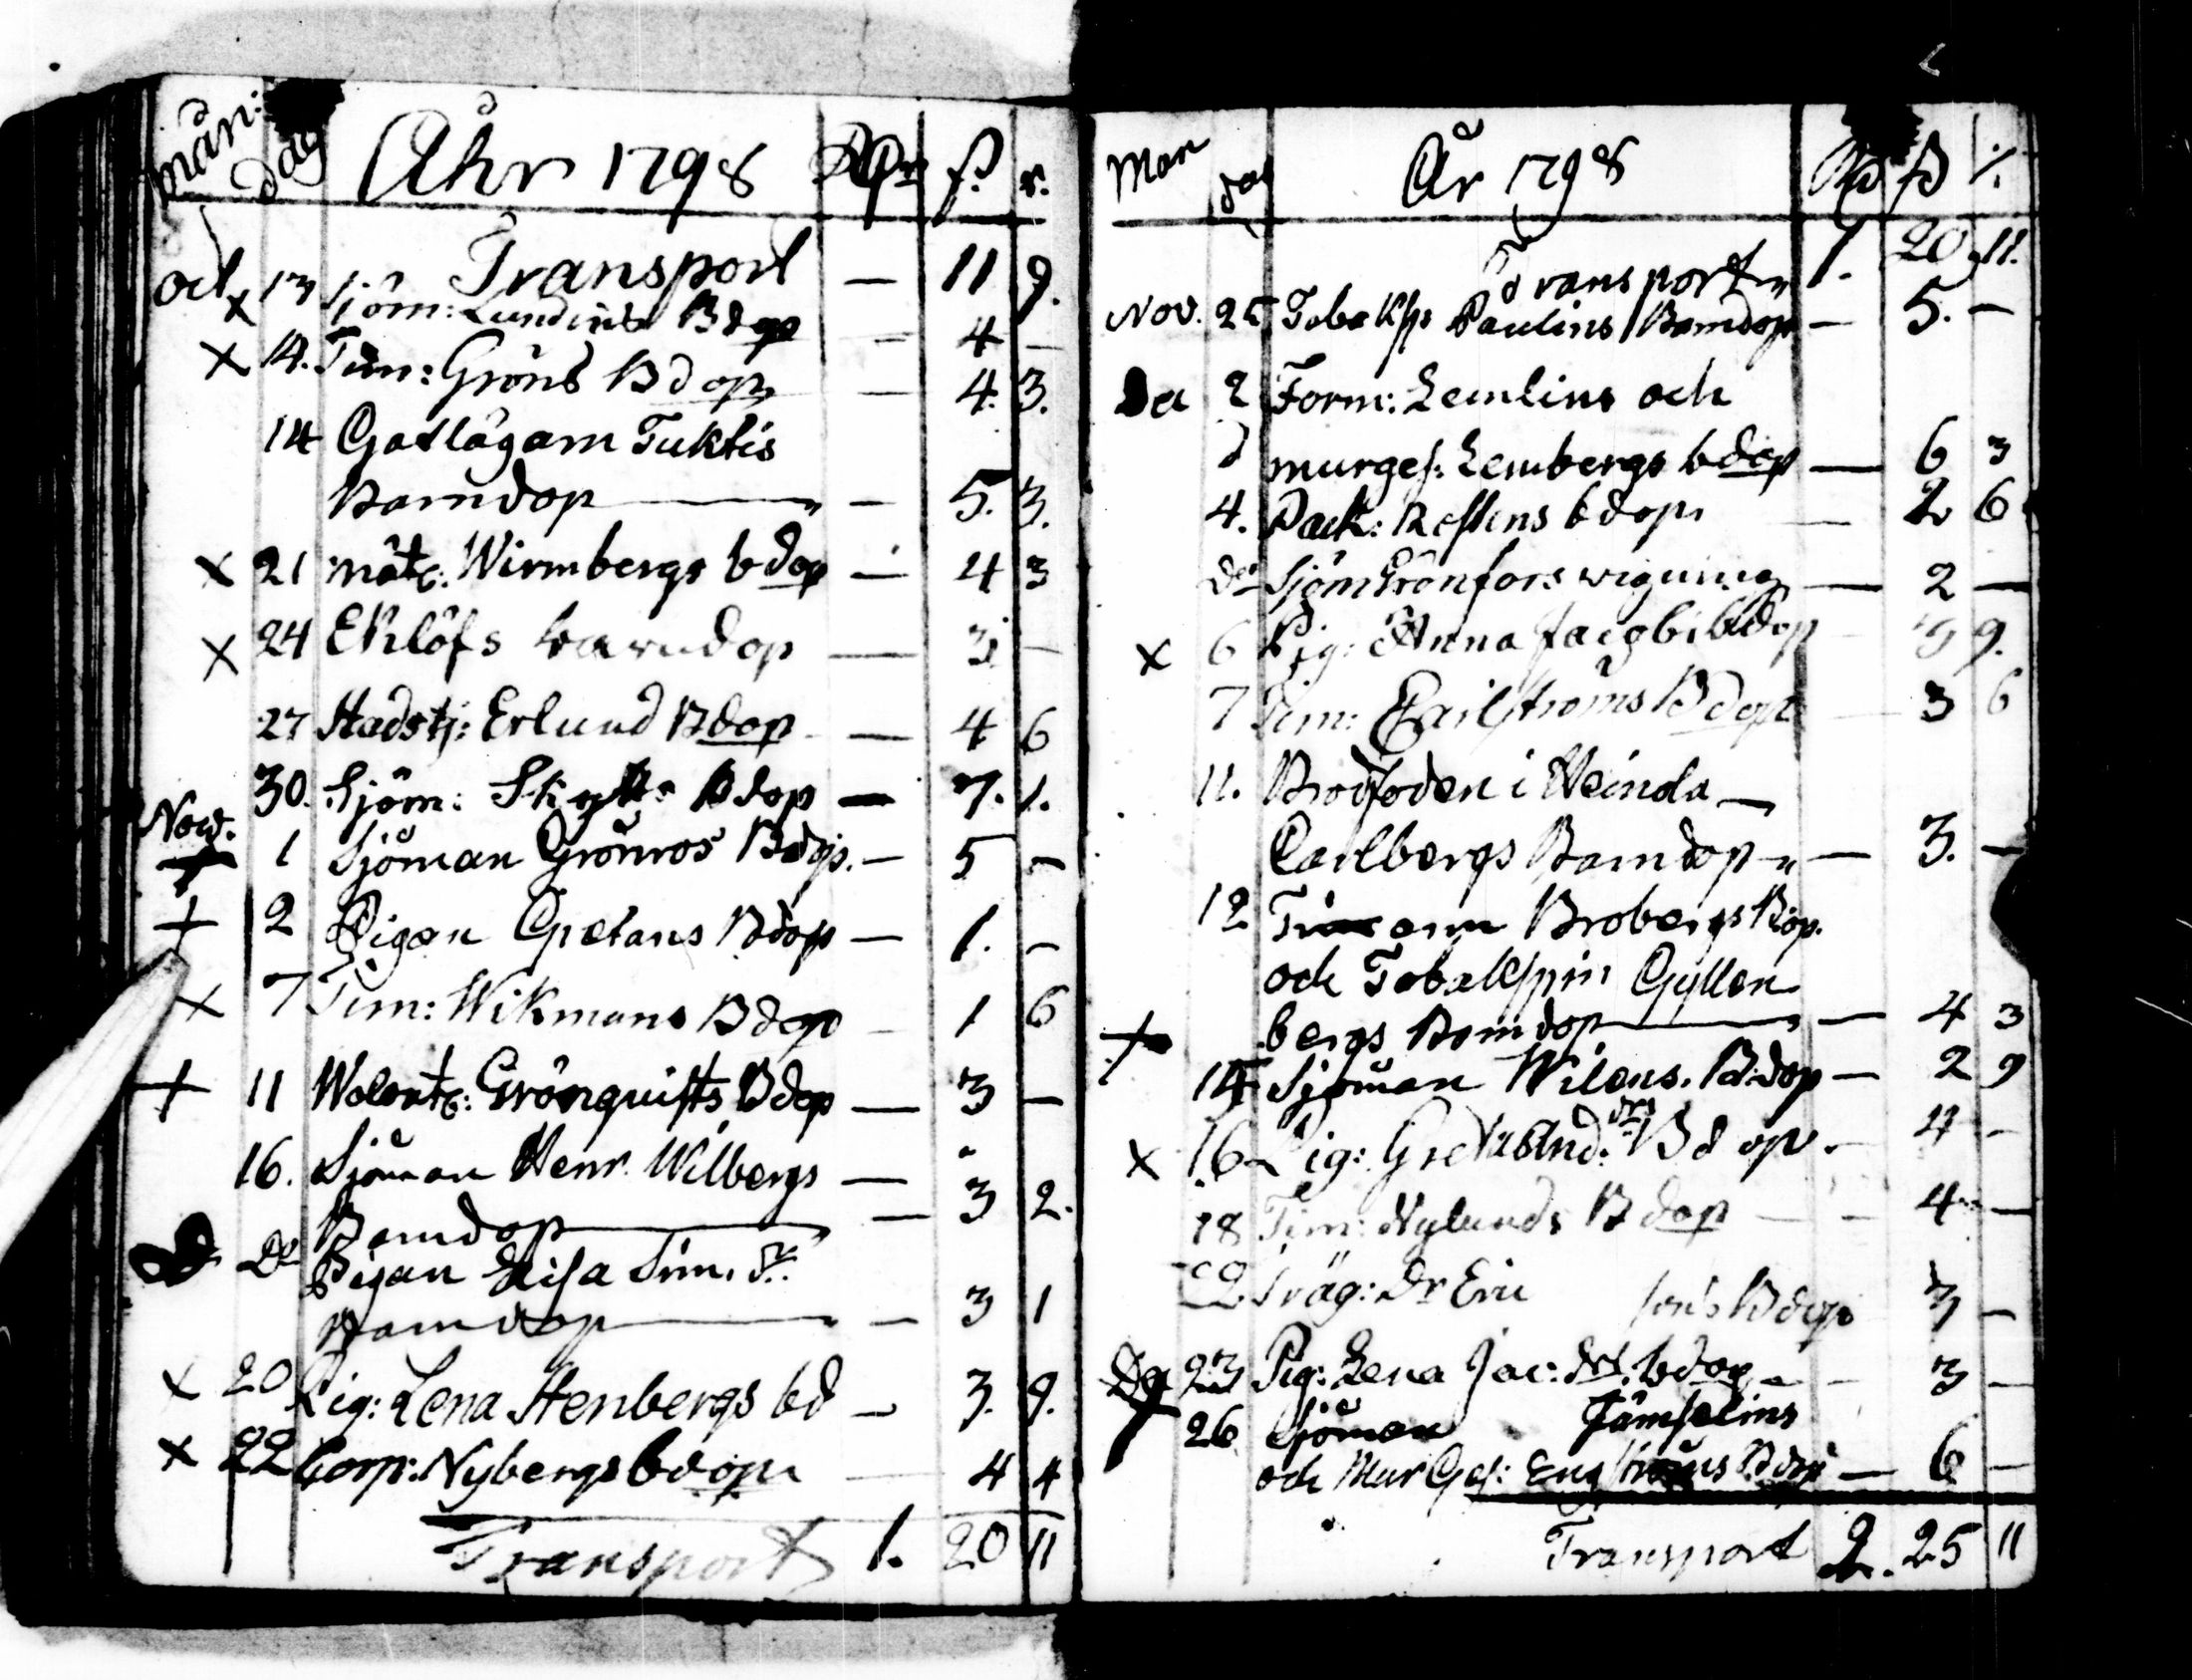 mån: dag Åhr 1798 Rdr s. r.
Transport — 11 9.
oct x 13 Sjöm: Lundins Bdop — 4 —
x 14. Tim: Gröns Bdop — 4. 3.
14 Gatlägarn Tuktis
Barndop — 5. 3.
x 21 Wirmbergs bdop — 4 3
x 24 Eklöfs barndop — 3 —
27 Stadstj: Erlund Bdop — 4 6
30. Sjöm: Bdop — 7. 1.
Nov.
+ 1 Sjöman Grönros Bdop. — 5 —
+ 2 Pigan Gretans Bdop — 1. —
x 7 Tim: Wikmans Bdop — 1 6
+ 11 Grönquists Bdop — 3 —
16. Sjöman Henr. Wilbergs —
Barndop — 3 2.
Do Pigan Lisa Sim. dr.
Barndop — 3 1
x 20 Pig: Lena Stenbergs bd — 3. 9.
x 22 Corp: Nybergs bdop — 4 4
Transport 1. 20 11
Mon dag År 1798
Transport 1. 20 11.
Nov. 25 Paulins Barndop — 5. —
2 Form: Lemlins och
d murges: Lembergs bdop — 6 3
4. bdop — 2 6
do Sjöm Grönfors wigning — 2 —
x 6 Pig: Anna Jacobi bdop 9.
7 Tim: Carlströms Bdop — 3 6
11. i Heinola —
Carlbergs Barndop — 3. —
12 Brobergs Bdop.
och Gyllen
+ bergs Barndop — 4 3
14 Sjöman Wilens. Bdop — 2 9
x 16 Pig: Greta And: drs Bdop — 4 —
18 Tim: Nylunds Bdop — 4 —
22 Träg: Dr Eric sons Bdop 3 —
23 Pig: Lena Jac: drs. bdop — 3 —
26 Sjöman
och Mur Ges: Bdop — 6 —
Transport 2. 25 11